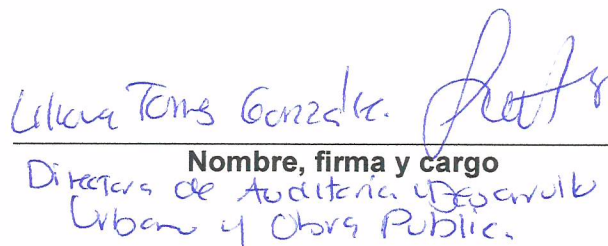 Liliana Torres González.
Nombre, firma y cargo
Directora de Auditoría y Desarrollo
Urbano y Obra Public.